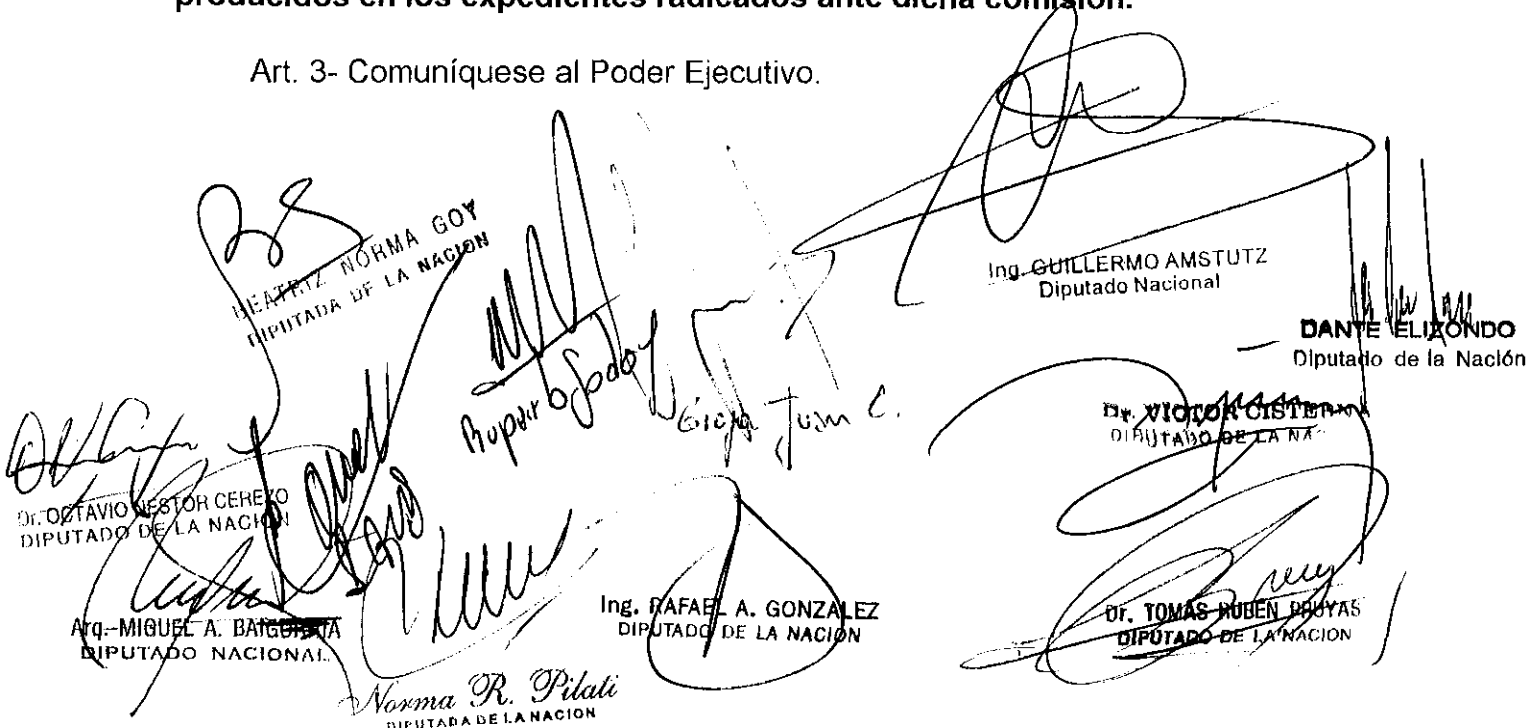 producidos en los expedientes radicados ante dicha comisión.
Art. 3- Comuníquese al Poder Ejecutivo.
BEATRIZ NORMA GOY
DIPUTADA DE LA NACION
Ing. GUILLERMO AMSTUTZ
Diputado Nacional
DANTE ELIZONDO
Diputado de la Nación
Juan C.
Dr. VICTOR CISTERN
DIPUTADO DE LA NA
Dr. OCTAVIO NESTOR CEREZO
DIPUTADO DE LA NACION
Ing. RAFAEL A. GONZALEZ
DIPUTADO DE LA NACIÓN
Dr. TOMÁS RUBÉN PRUYAS
DIPUTADO DE LA NACION
Arq. MIGUEL A.
DIPUTADO NACIONAL
Norma R. Pilati
DIPUTADA DE LA NACION